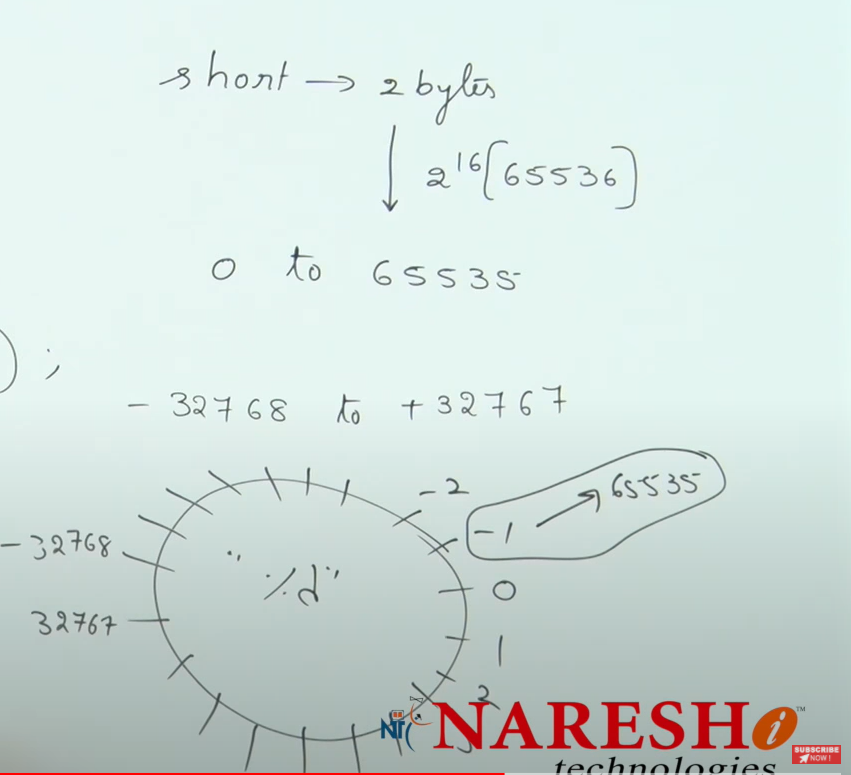 short → 2 bytes
↓ 2^16 [65536]
0 to 65535
) ;
- 32768 to + 32767
-2
-1 → 65535
- 32768
"%d"
0
32767
1
2
NARESH i ™
technologies
SUBSCRIBE
NOW!